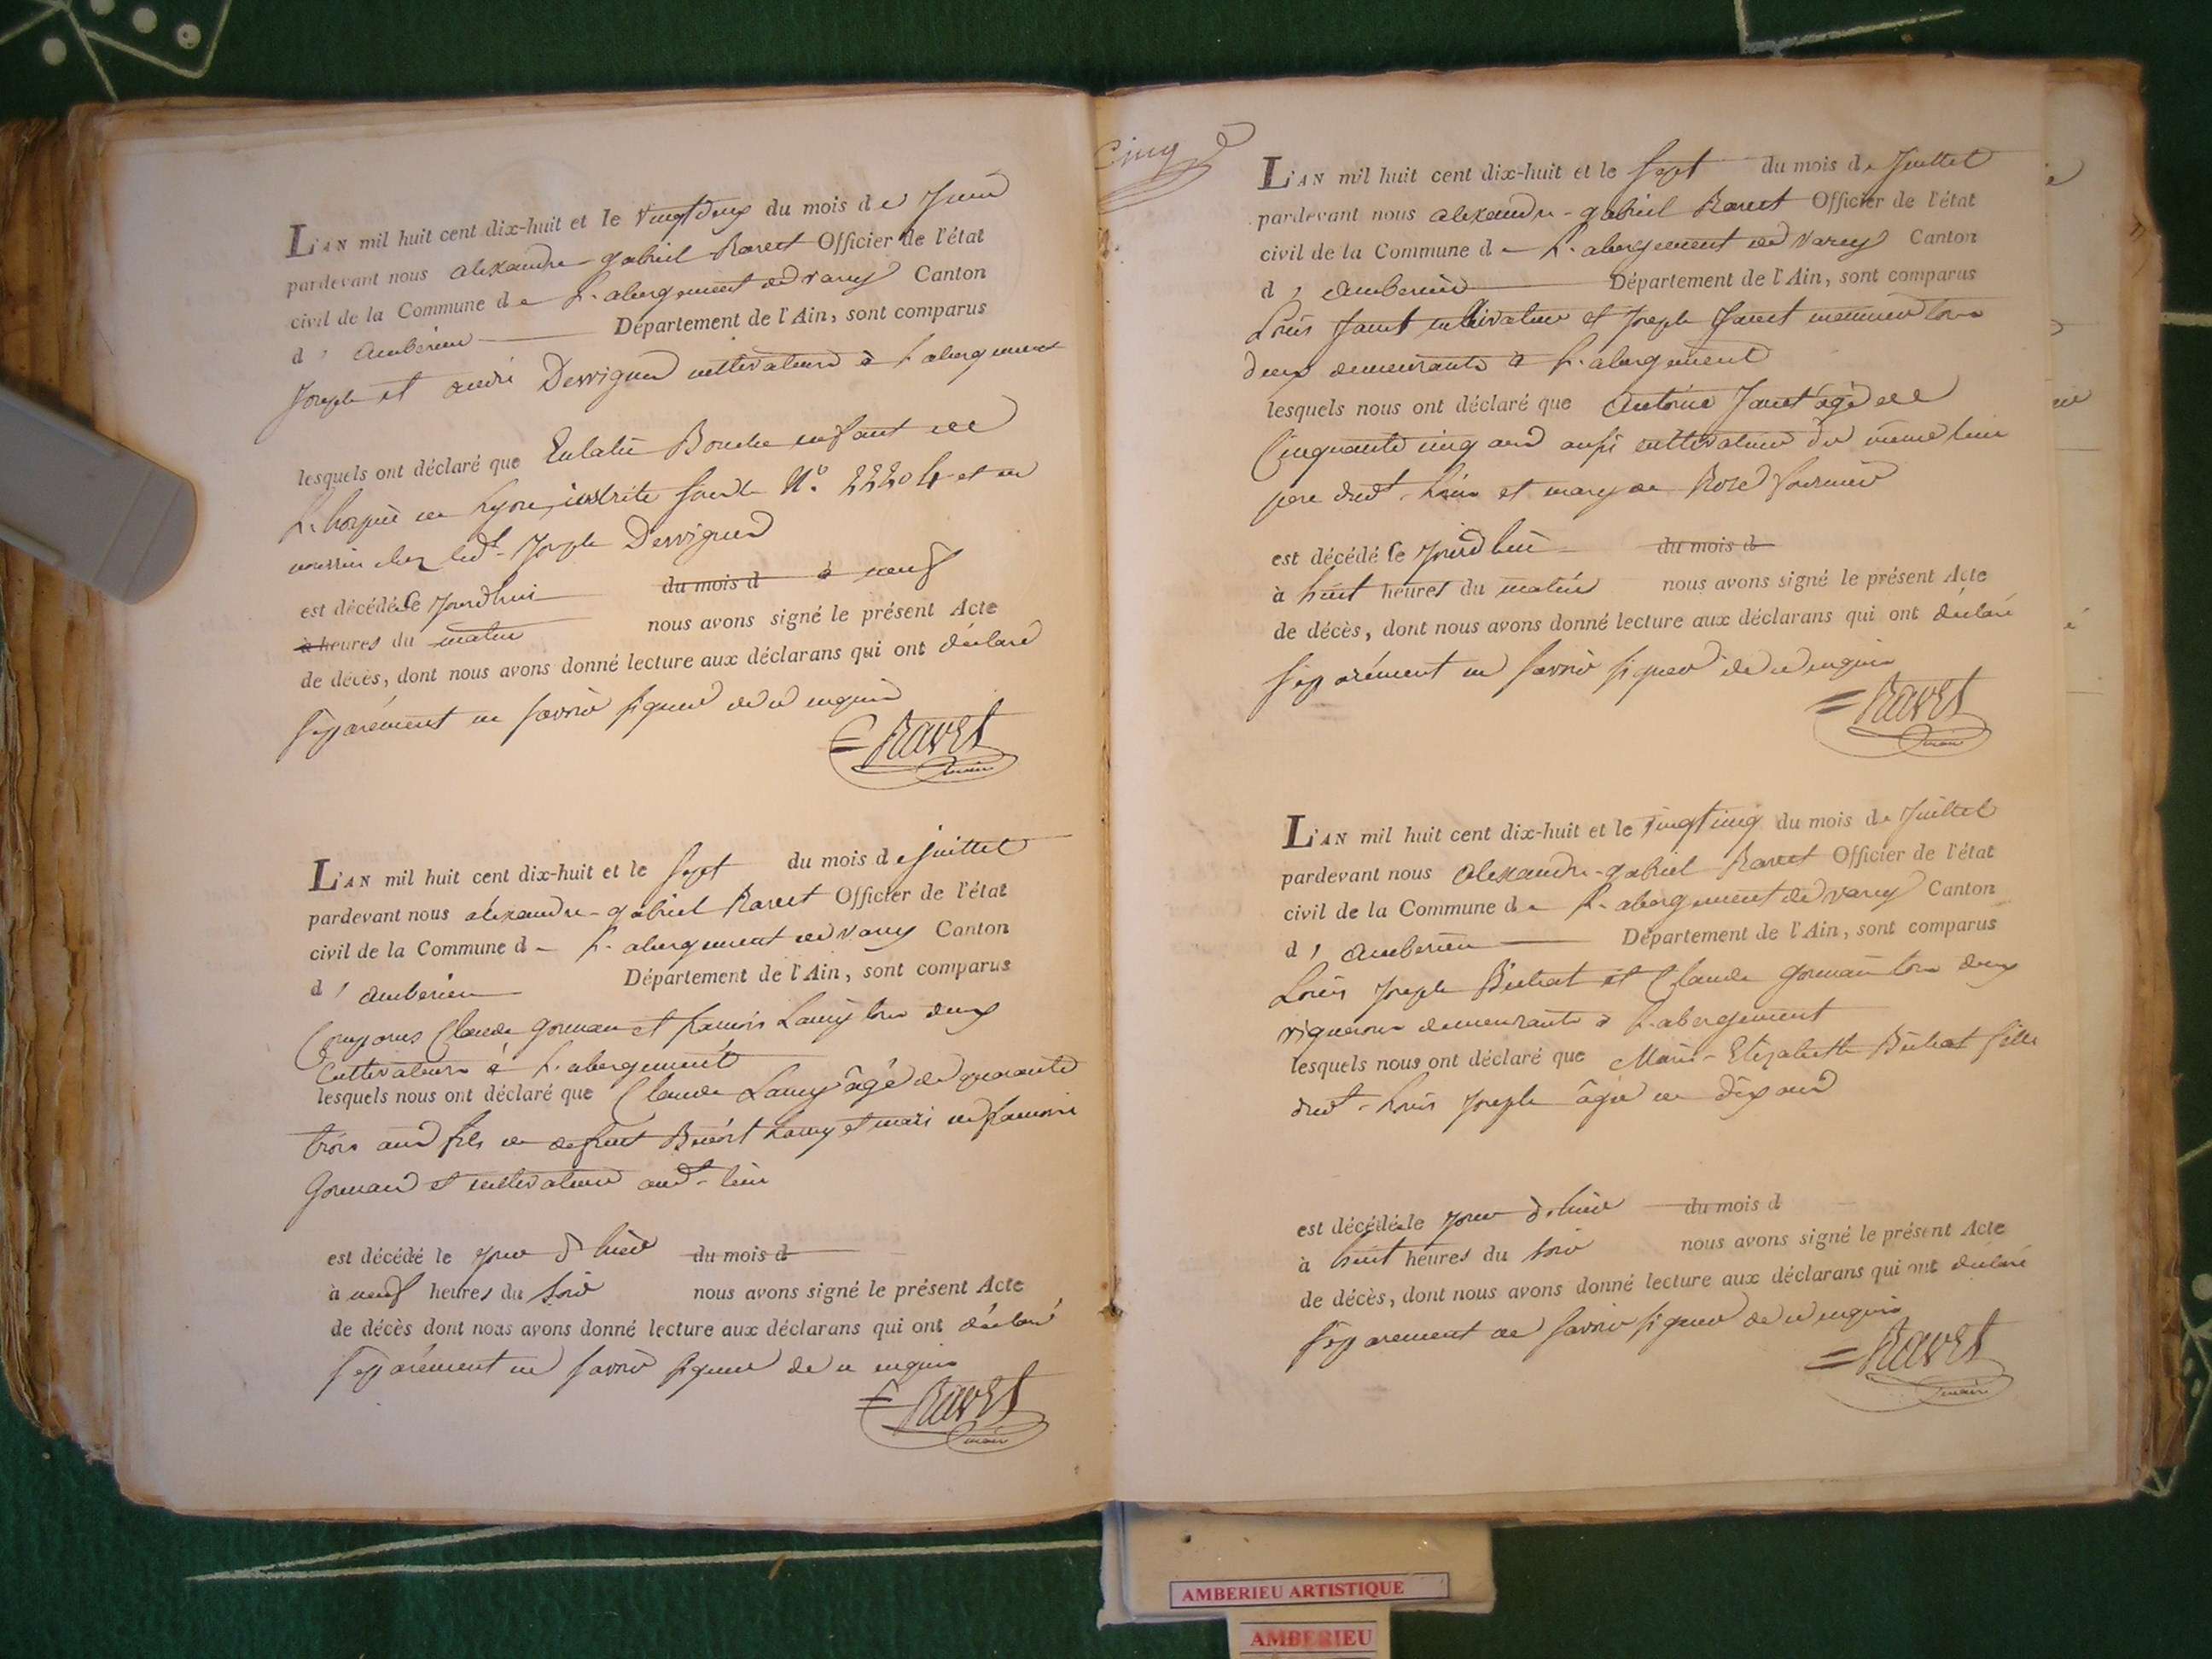 L'AN mil huit cent dix-huit et le vingt deux du mois de Juin
pardevant nous alexandre-gabriel Ravet Officier de l'état
civil de la Commune de L'abergement de varey Canton
d'Amberieu Département de l'Ain, sont comparus
Joseph et andré cultivateurs à L'abergement
lesquels ont déclaré que Eulalie Bouche enfant de
L'hospice de Lyon, inscrite sous le N.° 22204 et en
chez led.t Joseph
est décédée Ce Jourd'hui du mois d à neuf
à heures du matin nous avons signé le présent Acte
de décès, dont nous avons donné lecture aux déclarans qui ont déclaré
separément ne savoir signer de ce enquis
Ravet
maire
L'AN mil huit cent dix-huit et le Sept du mois de juillet
pardevant nous aléxandre-gabriel Ravet Officier de l'état
civil de la Commune de L'abergement de varey Canton
d'amberieu Département de l'Ain, sont comparus
Comparus Claude et francois Lamy tous deux
Cultivateurs à L'abergement
lesquels nous ont déclaré que Claude Lamy âgé de quarante
trois ans fils de defunt Benoit Lamy et mari de
et cultivateur aud.t lieu
est décédé le jour d'hier du mois d
à neuf heures du soir nous avons signé le présent Acte
de décès dont nous avons donné lecture aux déclarans qui ont déclaré
separément ne savoir signer de ce enquis
Ravet
maire
Cinq
L'AN mil huit cent dix-huit et le Sept du mois de Juillet
pardevant nous alexandre-gabriel Ravet Officier de l'état
civil de la Commune de L'abergement de varey Canton
d'amberieu Département de l'Ain, sont comparus
Louis Janet cultivateur et Joseph Janet tous
deux demeurants à L'abergement
lesquels nous ont déclaré que Antoine Janet âgé de
Cinquante cinq ans aussi cultivateur du même lieu
pere dud.t Louis et mary de Rose
est décédé Ce Jourd'hui du mois d
à huit heures du matin nous avons signé le présent Acte
de décès, dont nous avons donné lecture aux déclarans qui ont déclaré
separément ne savoir signer de ce enquis
Ravet
maire
L'AN mil huit cent dix-huit et le vingt cinq du mois de Juillet
pardevant nous Alexandre-gabriel Ravet Officier de l'état
civil de la Commune de L'abergement de varey Canton
d'amberieu Département de l'Ain, sont comparus
Louis Joseph Bichat et Claude tous deux
vignerons demeurants à L'abergement
lesquels nous ont déclaré que Marie-Elizabeth Bichat fille
dud.t Louis Joseph âgée de dix ans
est décédée le jour d'hier du mois d
à huit heures du soir nous avons signé le présent Acte
de décès, dont nous avons donné lecture aux déclarans qui ont déclaré
separement ne savoir signer de ce enquis
Ravet
maire
AMBERIEU ARTISTIQUE
AMBERIEU